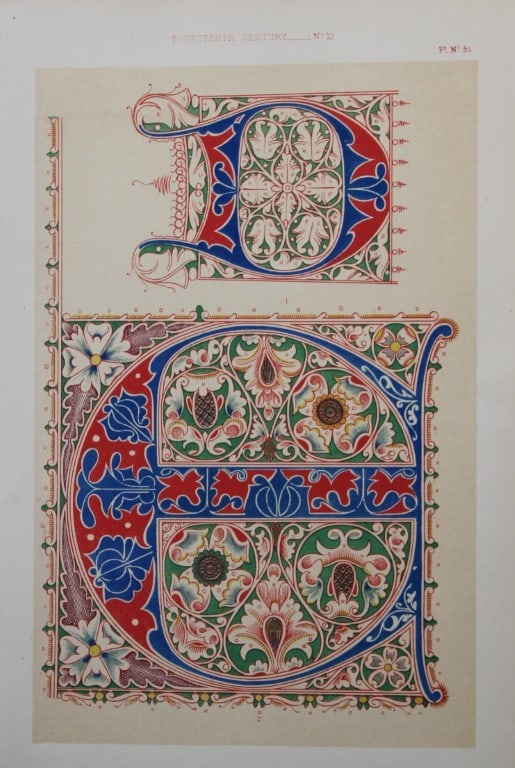 FOURTEENTH CENTURY____Nº13
Pl. Nº 55
D
1
E
2